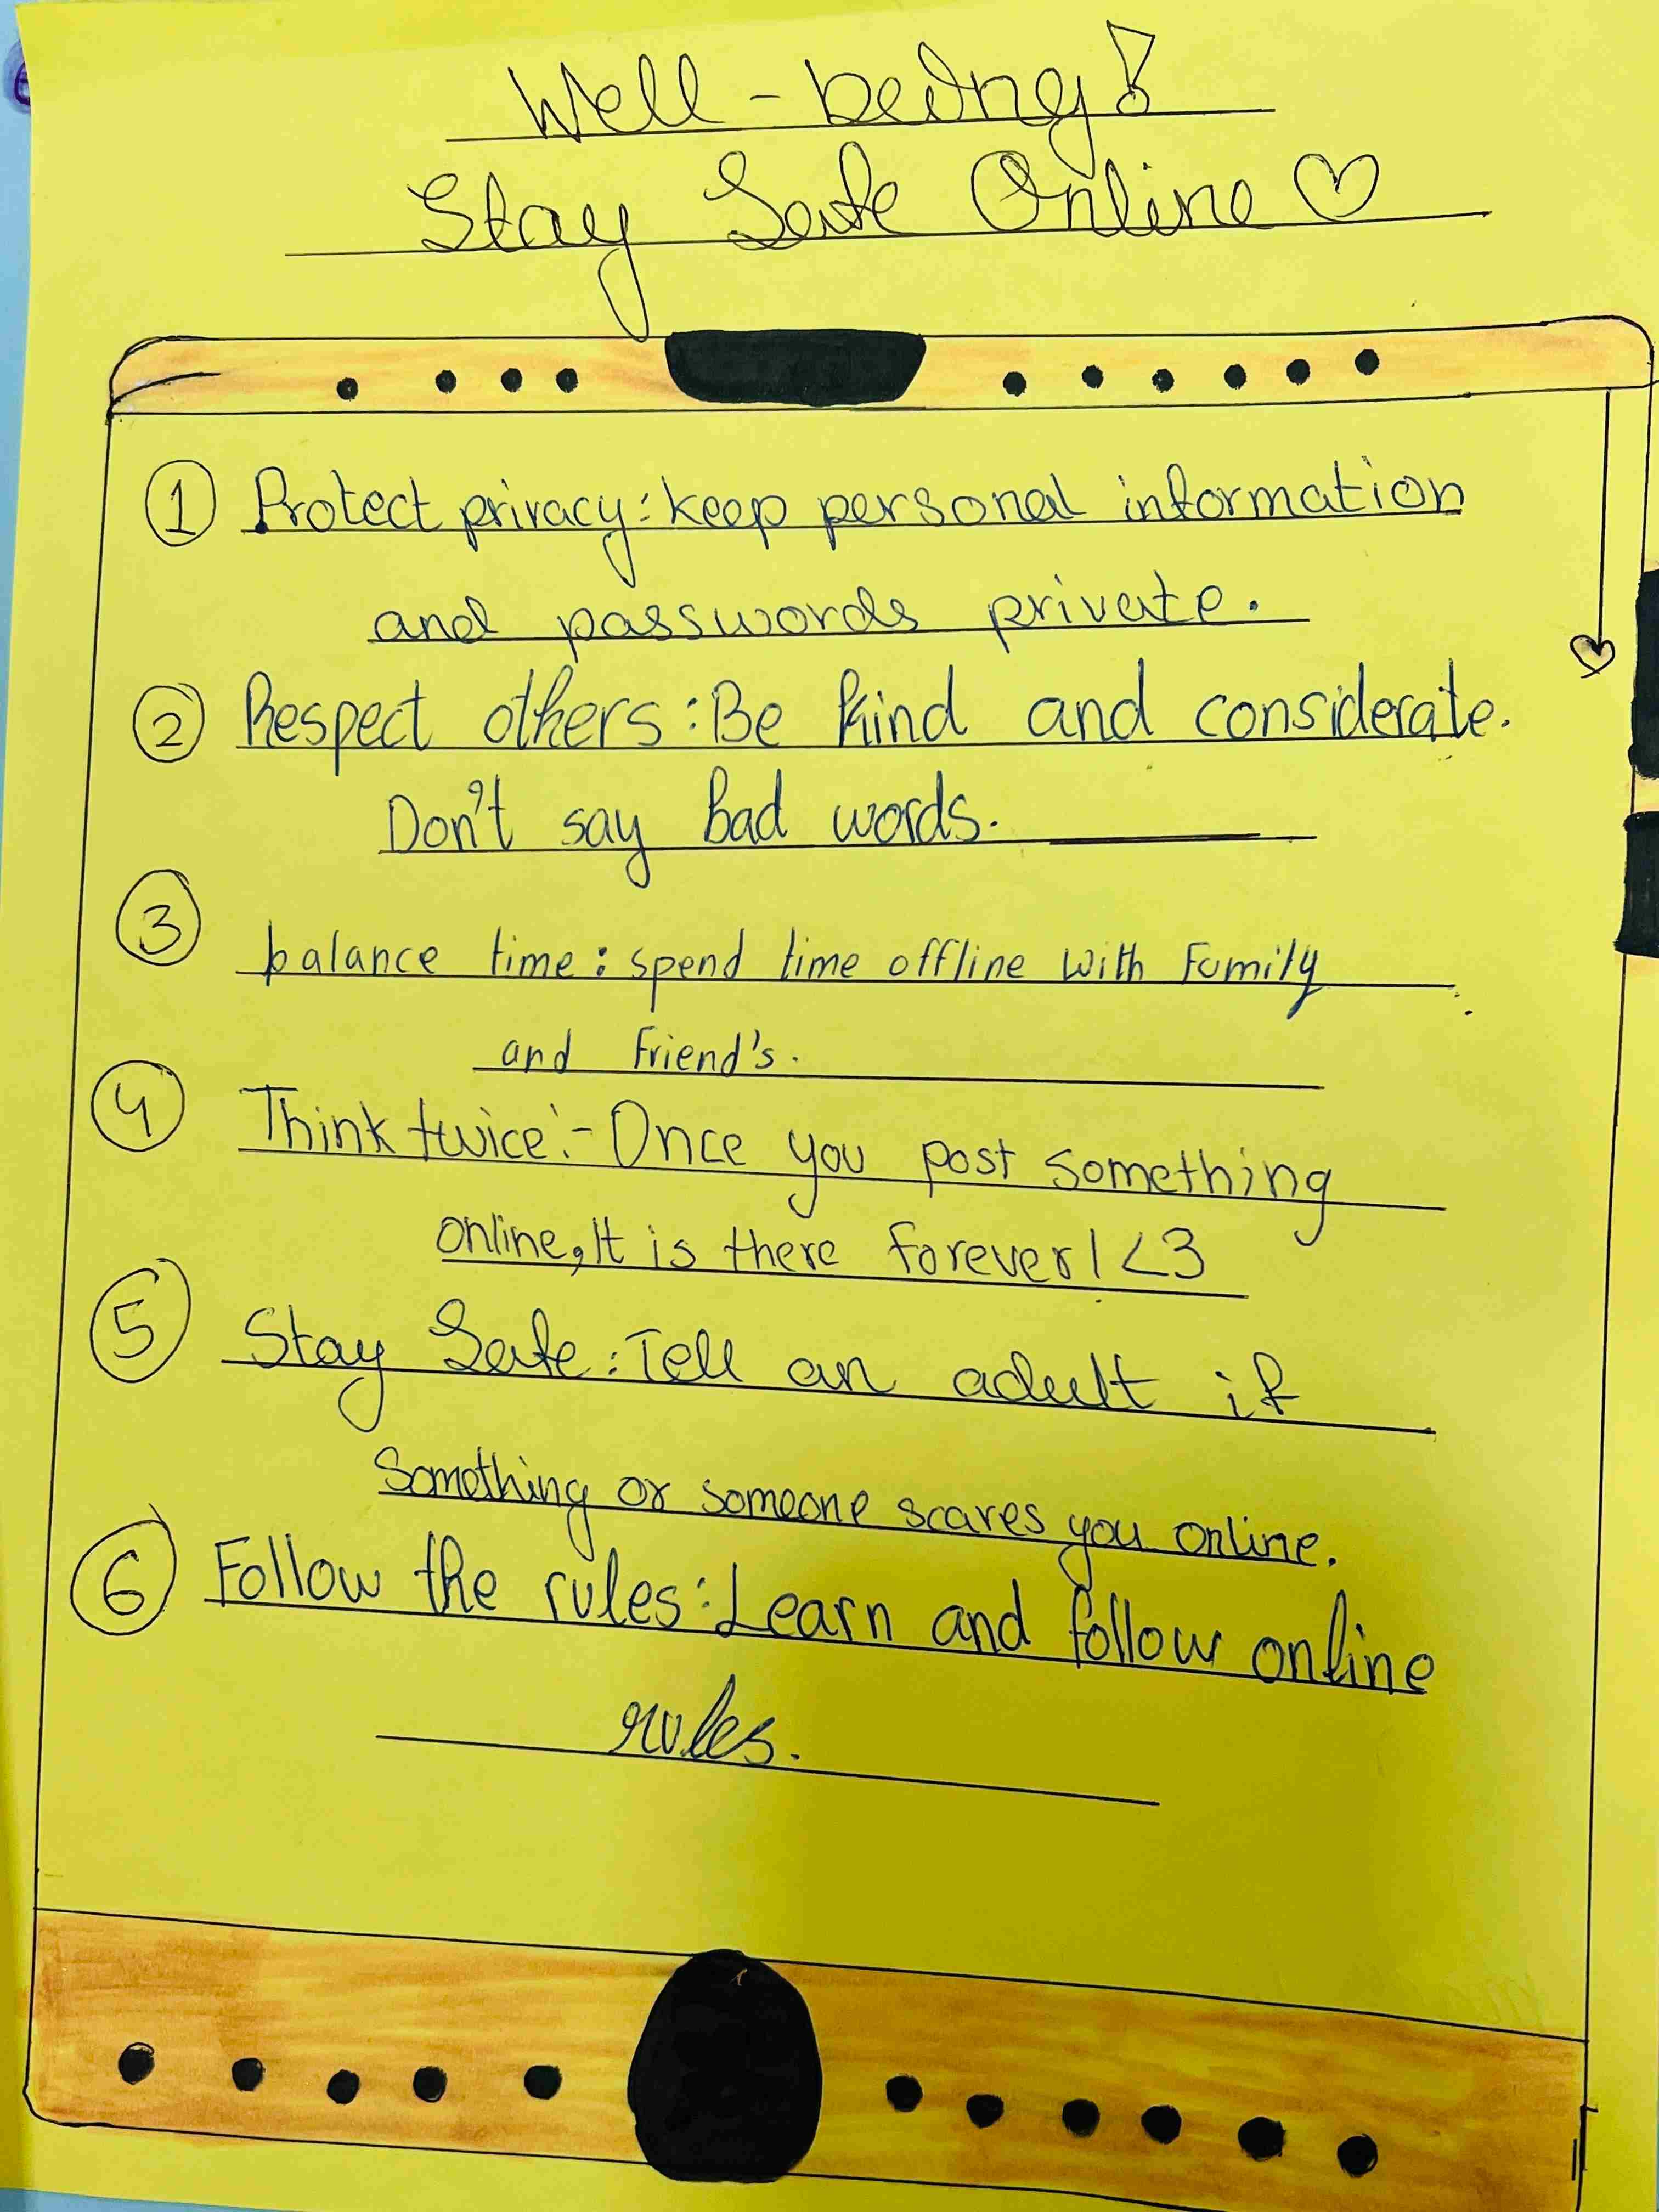 Well-being!
Stay Safe Online ♡
① Protect privacy: keep personal information
and passwords private.
② Respect others: Be kind and considerate.
Don't say bad words.
③ balance time: spend time offline with Family
and Friend's.
④ Think twice:- Once you post something
online, It is there forever! <3
⑤ Stay Safe: Tell an adult if
Something or someone scares you online.
⑥ Follow the rules: Learn and follow online
rules.